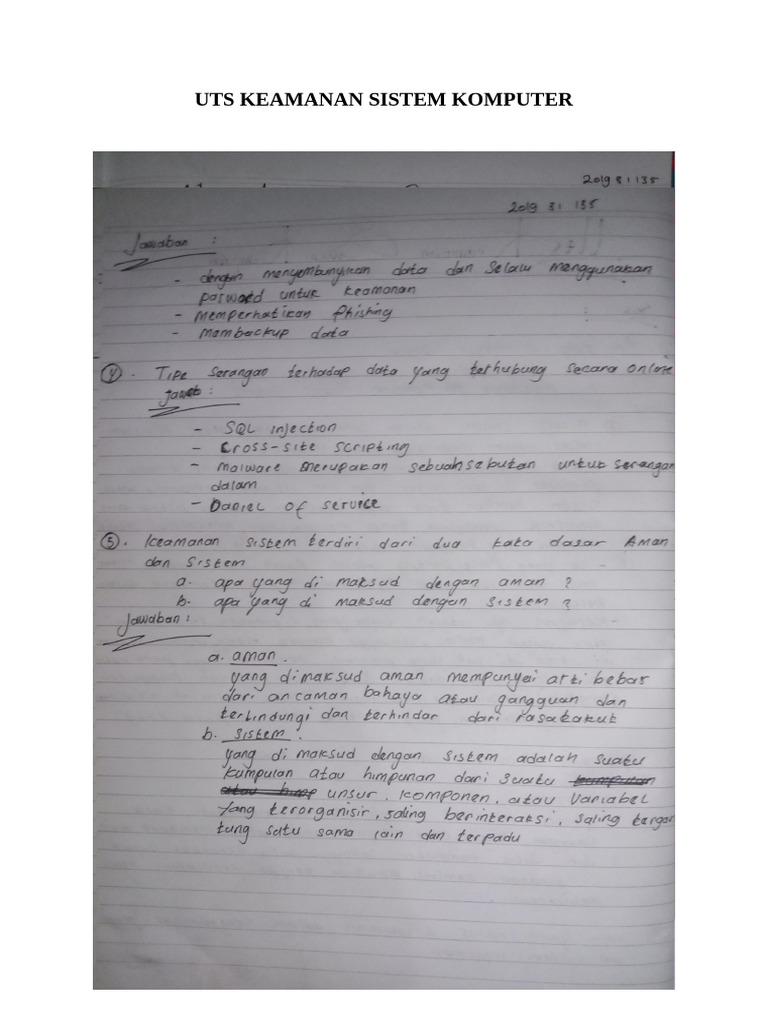 UTS KEAMANAN SISTEM KOMPUTER
2019 81 135
2019 31 135
Jawaban :
- dengan menyembunyikan data dan selalu menggunakan
pasword untuk keamanan
- memperhatikan Phishing
- membackup data
4. Tipe serangan terhadap data yang terhubung secara online
jawab :
- SQL injection
- Cross-site scripting
- Malware merupakan sebuah sebutan untuk serangan
dalam
- Daniel of service
5. Keamanan sistem terdiri dari dua kata dasar Aman
dan Sistem
a. apa yang di maksud dengan aman ?
b. apa yang di maksud dengan sistem ?
Jawaban :
a. aman .
yang dimaksud aman mempunyai arti bebas
dari ancaman bahaya atau gangguan dan
terlindungi dan terhindar dari rasa takut
b. sistem .
yang di maksud dengan sistem adalah suatu
kumpulan atau himpunan dari suatu kumpulan
atau himp unsur, komponen, atau Variabel
Yang terorganisir, saling berinteraksi, saling tergan
tung satu sama lain dan terpadu